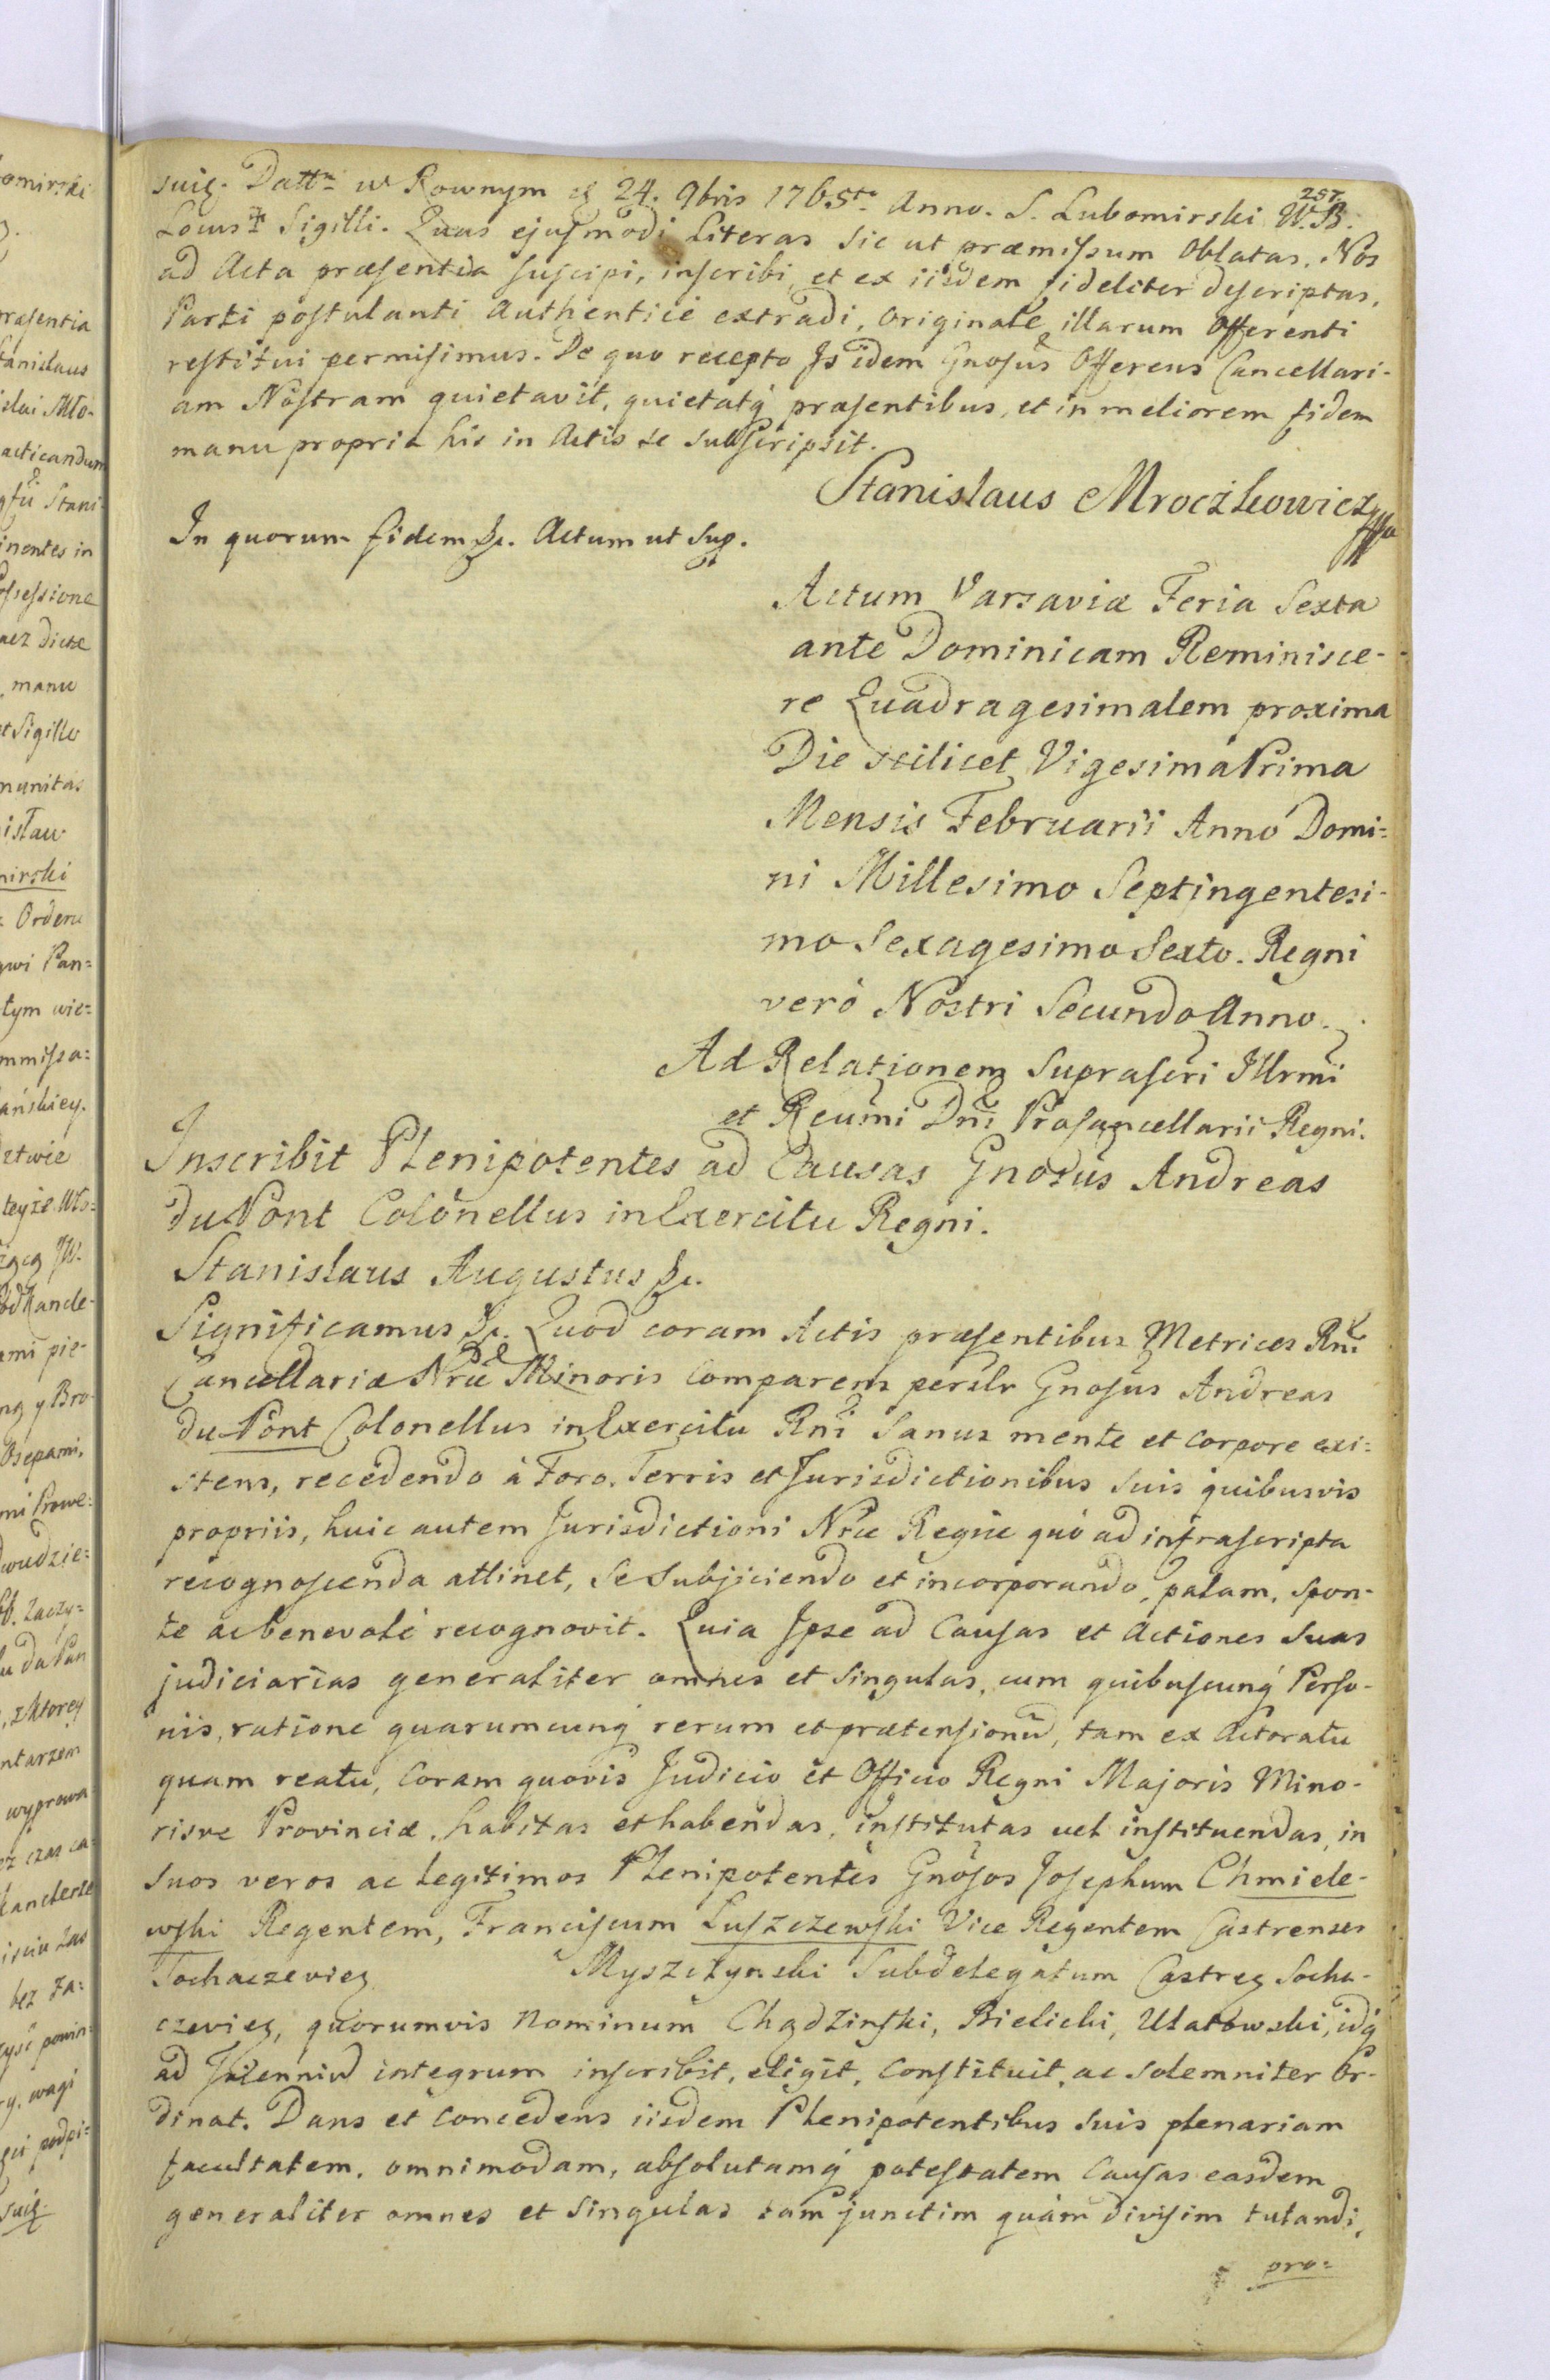 257
suię. Dattm w Rownym d. 24. 9bris 1765to Anno. S. Lubomirski W. B.
Locus Sigilli. Quas ejusmodi Literas sic ut præmissum Oblatas, Nos
ad Acta præsentia suscipi, inscribi, et ex iisdem fideliter descriptas,
Parti postulanti Authentice extradi, Originale illarum Offerenti
restitui permisimus. De quo recepto Is idem Gnosus Offerens Cancellari-
am Nostram quietavit, quietatq præsentibus, et in meliorem fidem
manu propria his in Actis se subscripsit.
Stanislaus Mroczkowicz
In quorum fidem &c. Actum ut sup.
Actum Varsaviæ Feria Sexta
ante Dominicam Reminisce-
re Quadragesimalem proxima
Die scilicet Vigesima Prima
Mensis Februarii Anno Domi=
ni Millesimo Septingentesi-
mo Sexagesimo Sexto. Regni
verò Nostri Secundo Anno.
Ad Relationem Suprascri Illrmi
et Reumi Dni Procancellarii Regni.
Inscribit Plenipotentes ad Causas Gnosus Andreas
du Pont Colonellus in Exercitu Regni.
Stanislaus Augustus &c.
Significamus &c. Quod coram Actis præsentibus Metrices Rni
Cancellariæ Nræ Minoris Comparens persler Gnosus Andreas
du Pont Colonellus in Exercitu Rni Sanus mente et corpore exi=
stens, recedendo à Foro, Terris et Jurisdictionibus suis quibusvis
propriis, huic autem Jurisdictioni Nræ Regiæ quò ad infrascripta
recognoscenda attinet, se subjiciendo et incorporando, palam, spon-
te ac benevolè recognovit. Quia Ipse ad Causas et Actiones suas
judiciarias generaliter omnes et singulas, cum quibuscunq Perso-
nis, ratione quarumcunq rerum et prætensionũ, tam ex Actoratu
quam reatu, coram quovis Judicio et Officio Regni Majoris Mino-
risve Provinciæ, habitas et habendas, institutas vel instituendas, in
suos veros ac legitimos Plenipotentes Gnosos Josephum Chmiele-
wski Regentem, Franciscum Luszczewski Vice Regentem Castrenses
Sochaczevien Myszczynski Subdelegatum Castren Socha-
czevien, quorumvis Nominum Chądzinski, Bielicki, Ulatowski, idq
ad Trienniũ integrum inscribit, eligit, constituit, ac solemniter Or-
dinat. Dans et concedens iisdem Plenipotentibus suis plenariam
facultatem, omnimodam, absolutamq potestatem causas easdem
generaliter omnes et singulas tam junctim quàm divisim tutandi,
pro=